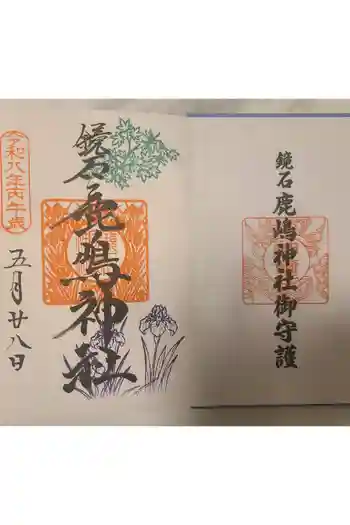 鏡石
鹿嶋神社御守護
鏡石
鹿嶋神社
令和八年丙午歳
五月廿八日